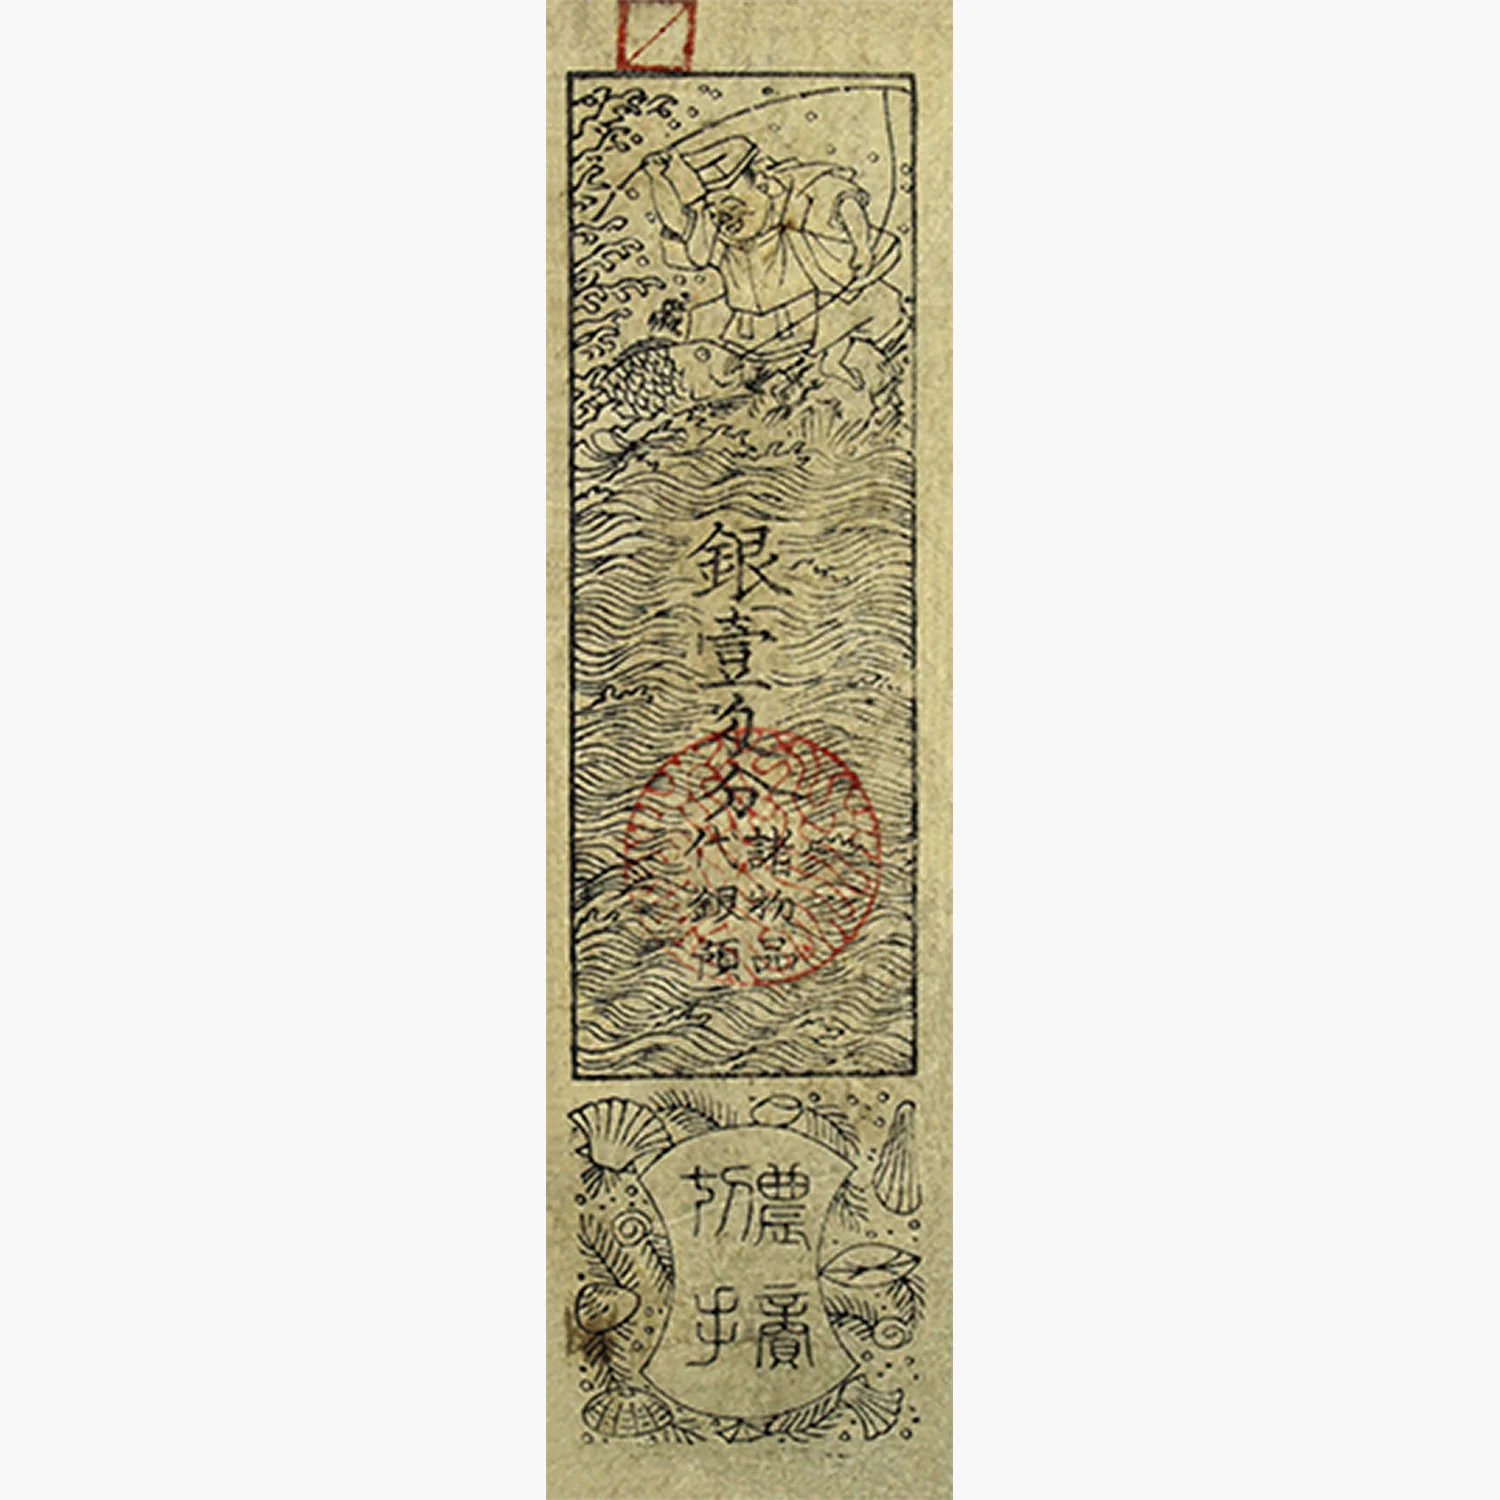 銀壹匁分
諸物品
代銀預
農𧶜
切手